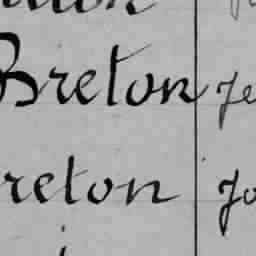 Breton Je
reton Jo